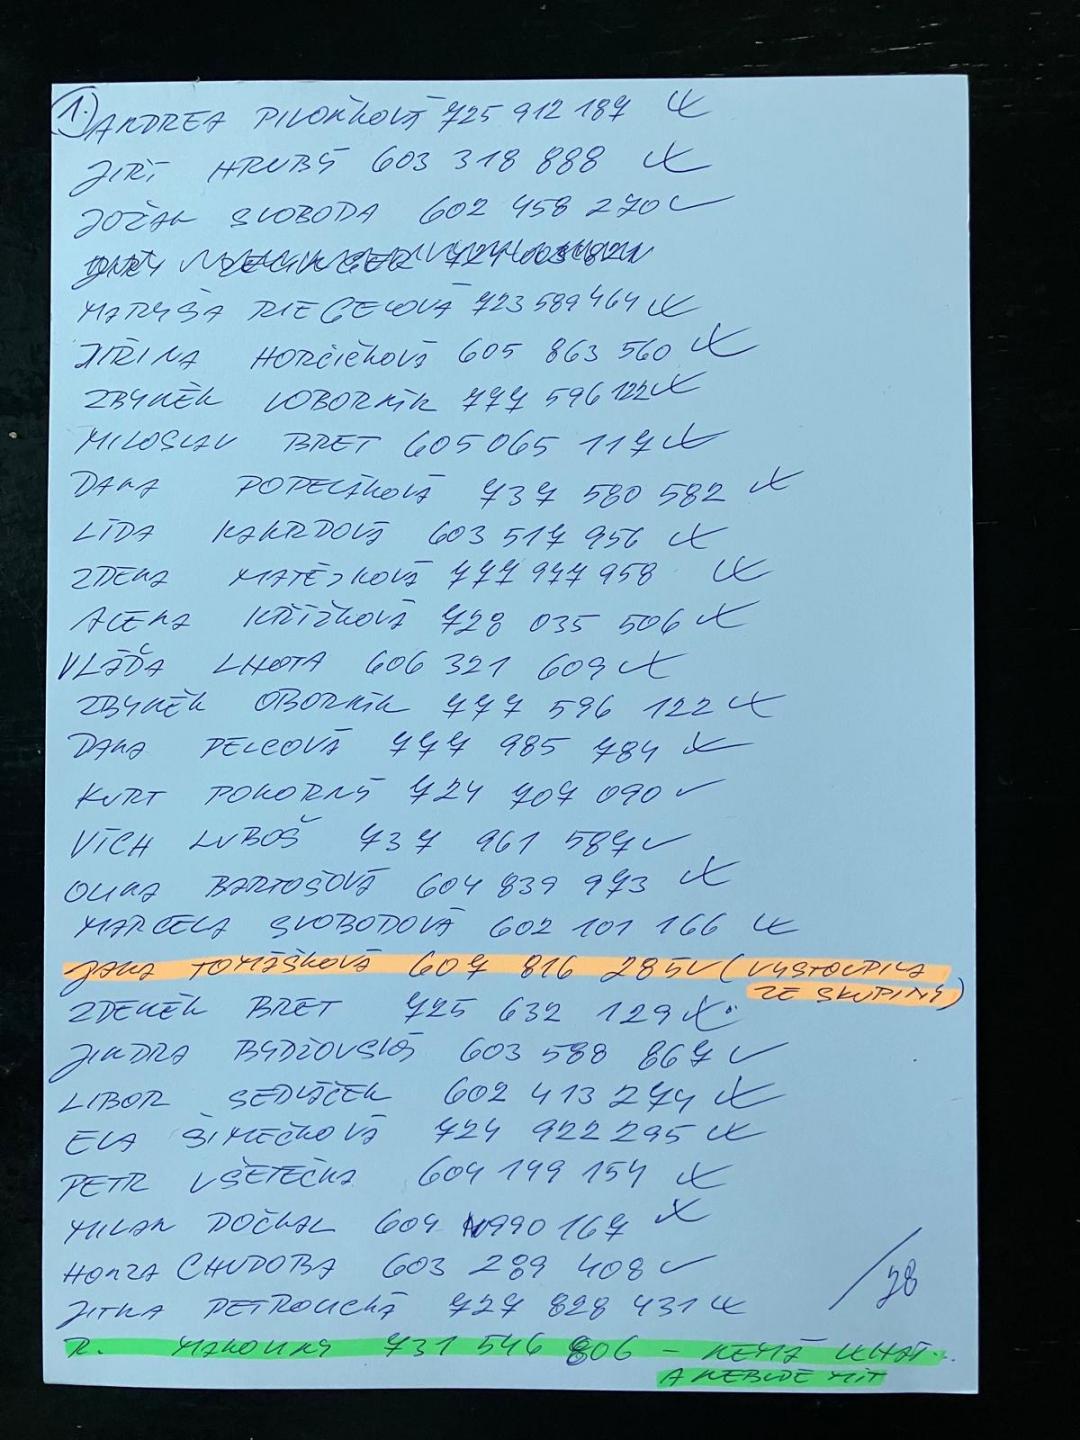 1. ANDREA PIVOŇKOVÁ 725 912 187
JIŘÍ HRUBÝ 603 318 888
JOŽAN SVOBODA 602 458 270 ✓
MARYŠA RIEGELOVÁ 723 589 464
JIŘINA HORČIČKOVÁ 605 863 560
ZBYNĚK VOBORNÍK 777 596 122
MILOSLAV BRET 605 065 117
DANA POPELÁKOVÁ 737 580 582
LÍDA KAKRDOVÁ 603 517 956
ZDENA MATĚJKOVÁ 777 977 958
ALENA KŘÍŽKOVÁ 728 035 506
VLÁĎA LHOTA 606 321 609
ZBYNĚK OBORNÍK 777 596 122
DANA PELCOVÁ 777 985 784
KURT POKORNÝ 724 707 090 ✓
VÍCH LUBOŠ 737 961 587 ✓
OLINA BARTOŠOVÁ 604 839 973
MARCELA SVOBODOVÁ 602 101 166
JANA TOMÁŠKOVÁ 607 816 285 ✓ (VYSTOUPILA
ZE SKUPINY)
ZDENĚK BRET 725 632 129
JINDRA BYDŽOVSKÝ 603 588 867 ✓
LIBOR SEDLÁČEK 602 413 274
EVA ŠIMEČKOVÁ 724 922 295
PETR VŠETEČKA 604 149 154
MILAN DOČKAL 604 990 167
HONZA CHUDOBA 603 289 408 ✓
/28
JITKA PETROVICKÁ 727 828 431
R. MAKOVNÝ 731 546 806 – NEMÁ WHAT..
A NEBUDE MÍT